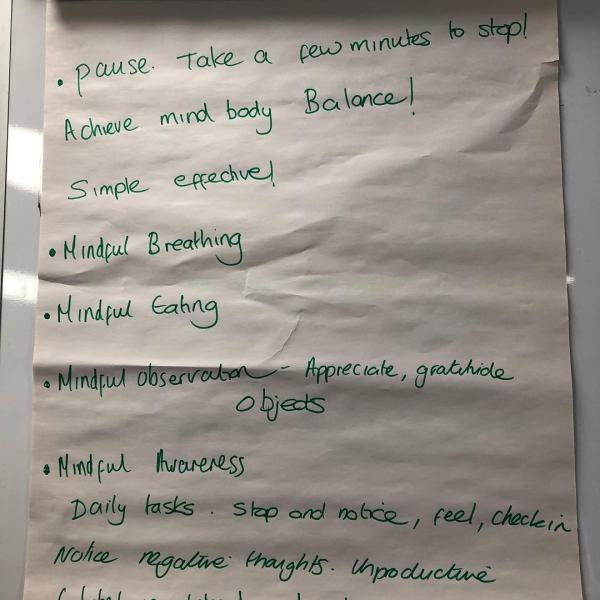 • Pause. Take a few minutes to stop!
Achieve mind body Balance!
Simple effective!
• Mindful Breathing
• Mindful Eating
• Mindful observation - Appreciate, gratitude
Objects
• Mindful Awareness
Daily tasks. Stop and notice, feel, check in
Notice negative thoughts. Unproductive